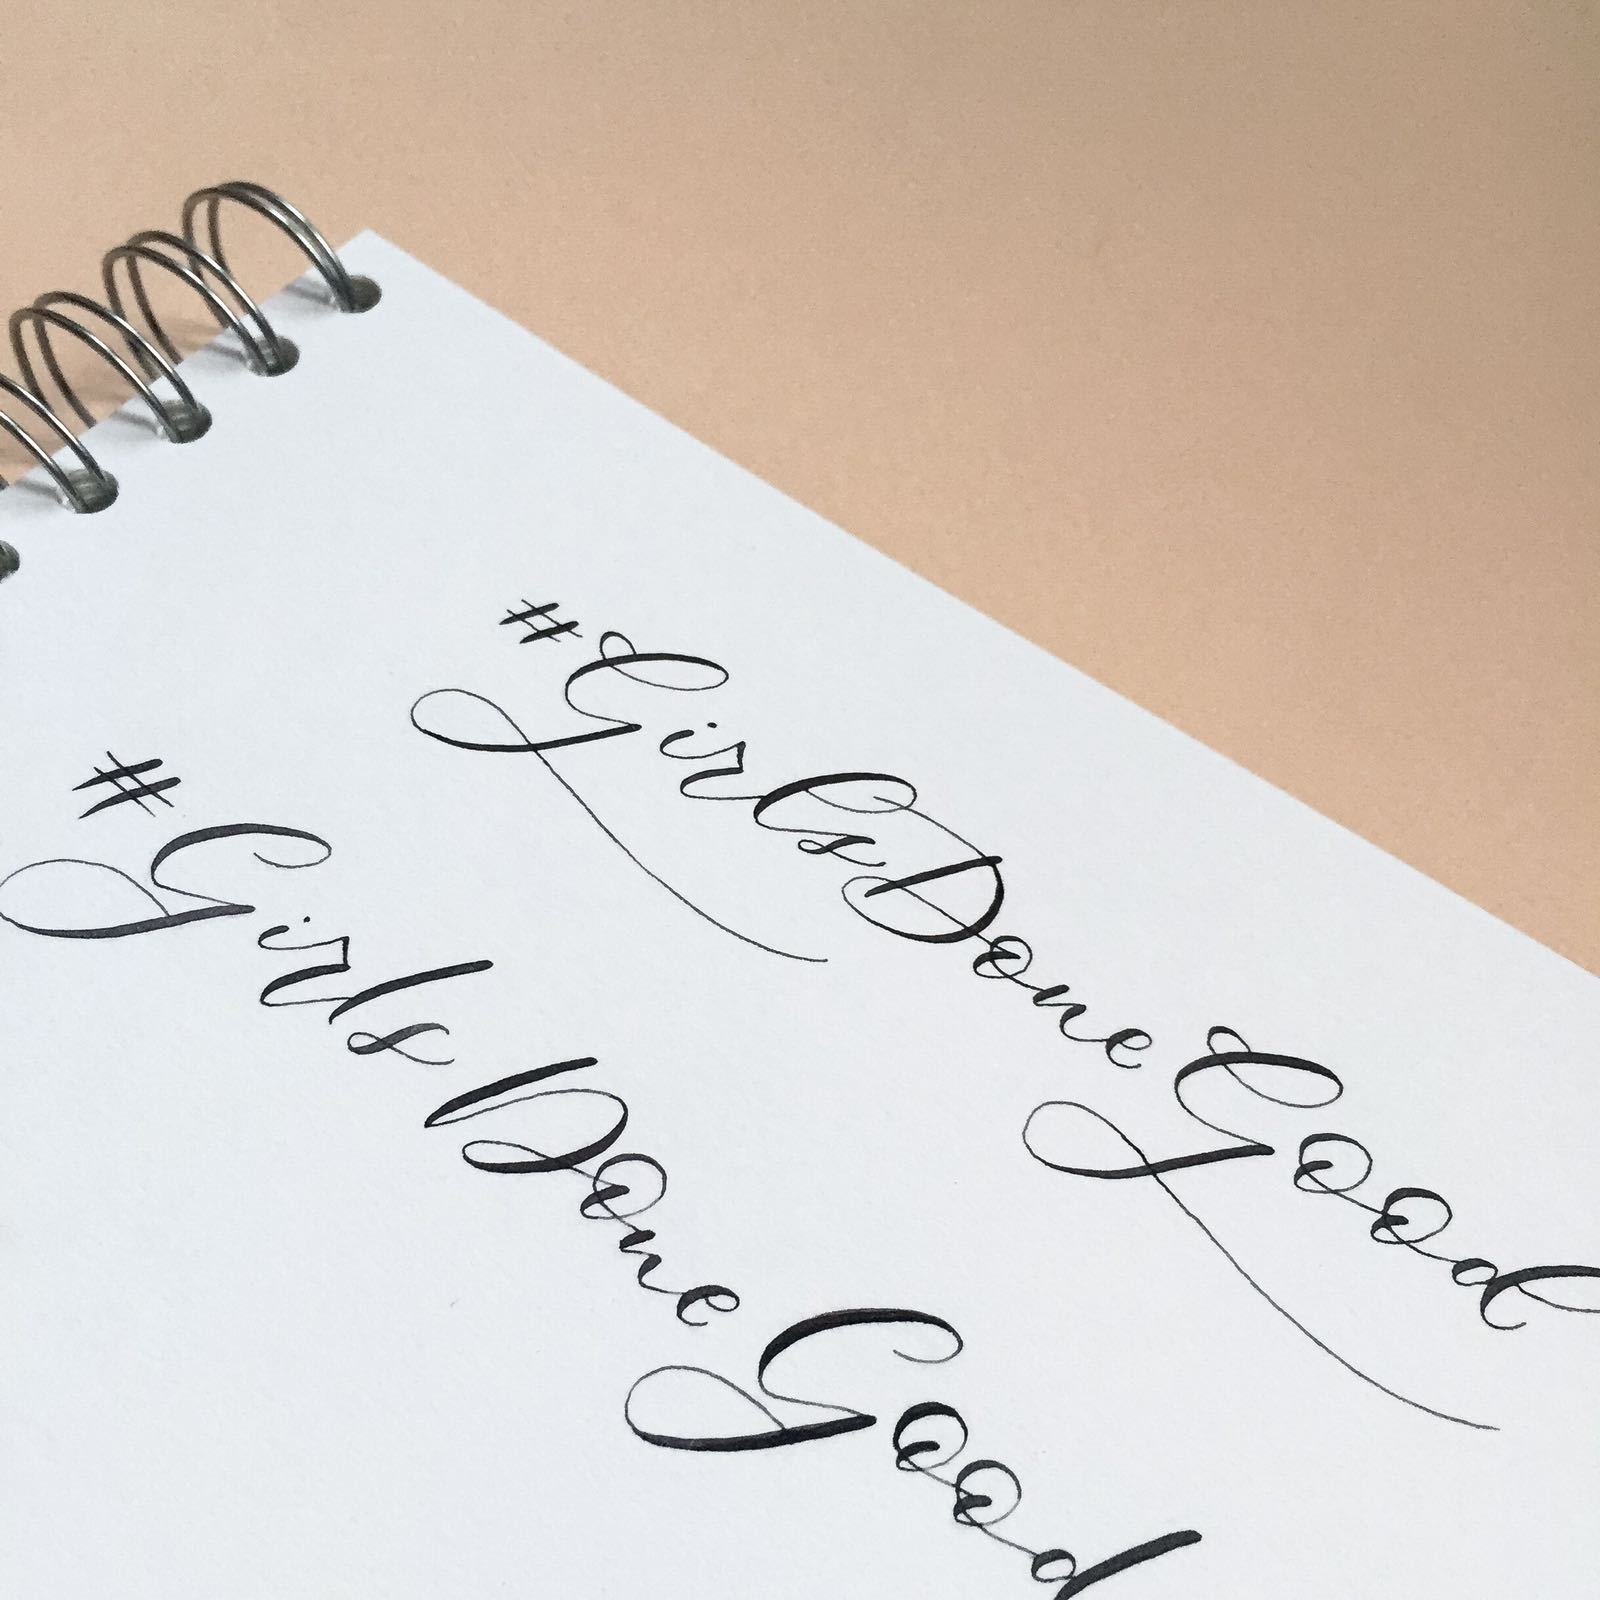 #GirlsDoneGood
#GirlsDoneGood